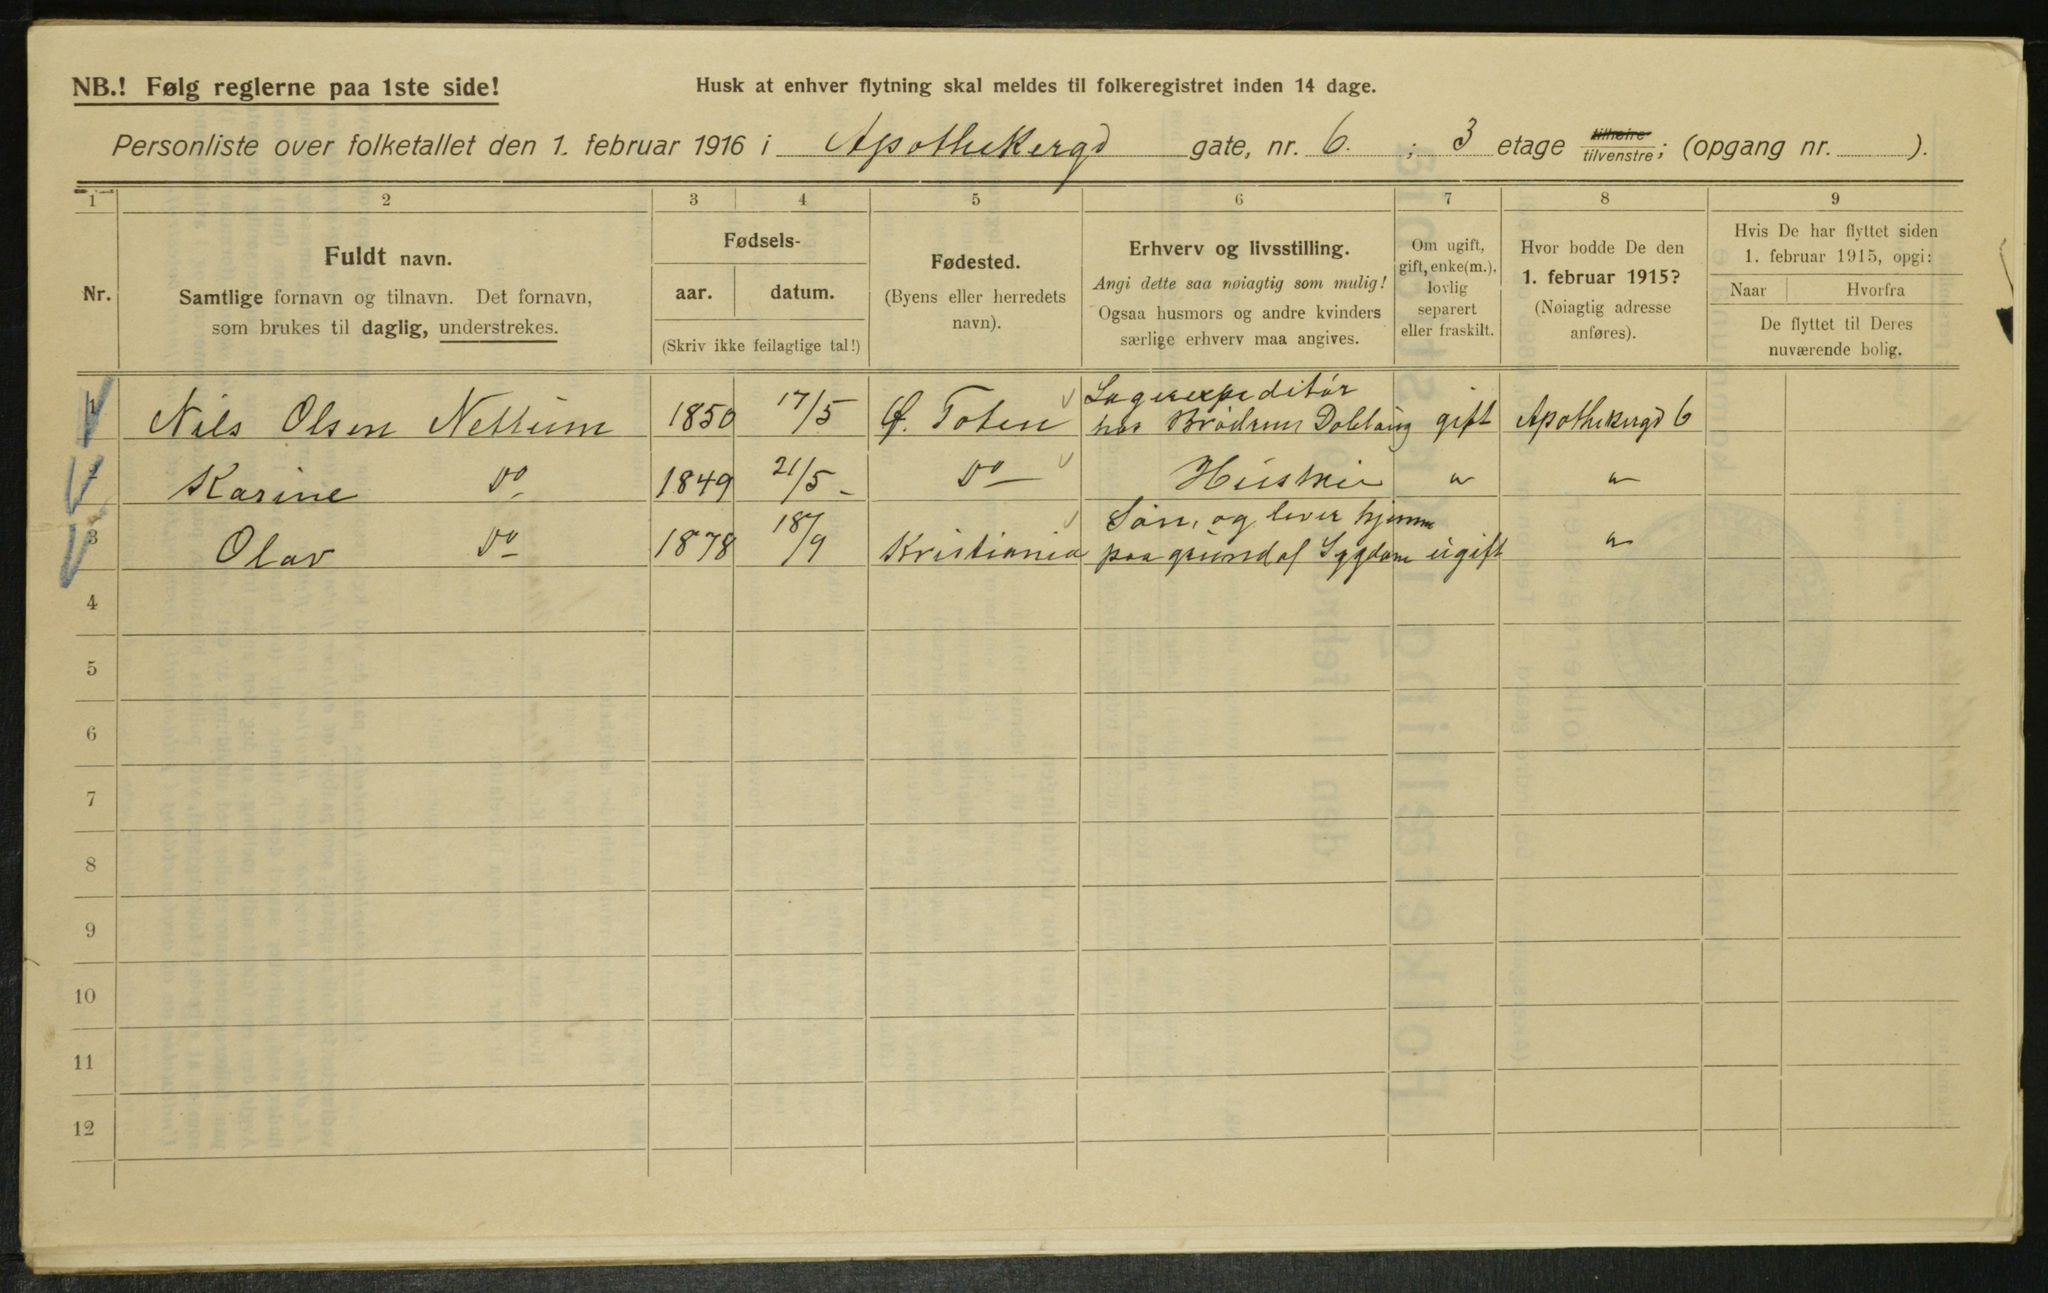 NB.! Følg reglerne paa 1ste side!
Husk at enhver flytning skal meldes til folkeregistret inden 14 dage.
Personliste over folketallet den 1. februar 1916 i Apothekergd gate, nr. 6. ; 3 etage tilhøire tilvenstre; (opgang nr. ).
1 2 3 4 5 6 7 8 9
Nr.
Fuldt navn.
Samtlige fornavn og tilnavn. Det fornavn,
som brukes til daglig, understrekes.
Fødsels-
aar. datum.
(Skriv ikke feilagtige tal!)
Fødested.
(Byens eller herredets
navn).
Erhverv og livsstilling.
Angi dette saa nøiagtig som mulig!
Ogsaa husmors og andre kvinders
særlige erhverv maa angives.
Om ugift,
gift, enke(m.),
lovlig
separert
eller fraskilt.
Hvor bodde De den
1. februar 1915?
(Nøiagtig adresse
anføres).
Hvis De har flyttet siden
1. februar 1915, opgi:
Naar Hvorfra
De flyttet til Deres
nuværende bolig.
1 Nils Olsen Nettum 1850 17/5 Ø. Toten Lagerexpeditør
hos Brødrene Dobloug gift Apothekergd 6
2 Karine Do 1849 21/5 Do Hustru " "
3 Olav Do 1878 18/9 Kristiania Søn, og lever hjemme
paa grund af Sygdom ugift "
4
5
6
7
8
9
10
11
12